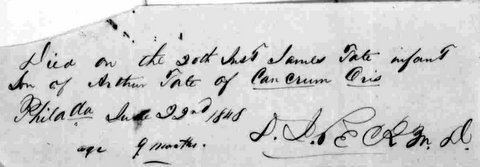 Died on the 20th Inst James Tate infant
Son of Arthur Tate of Cancrum Oris
Philada June 22nd 1848
age 9 months. M. D.